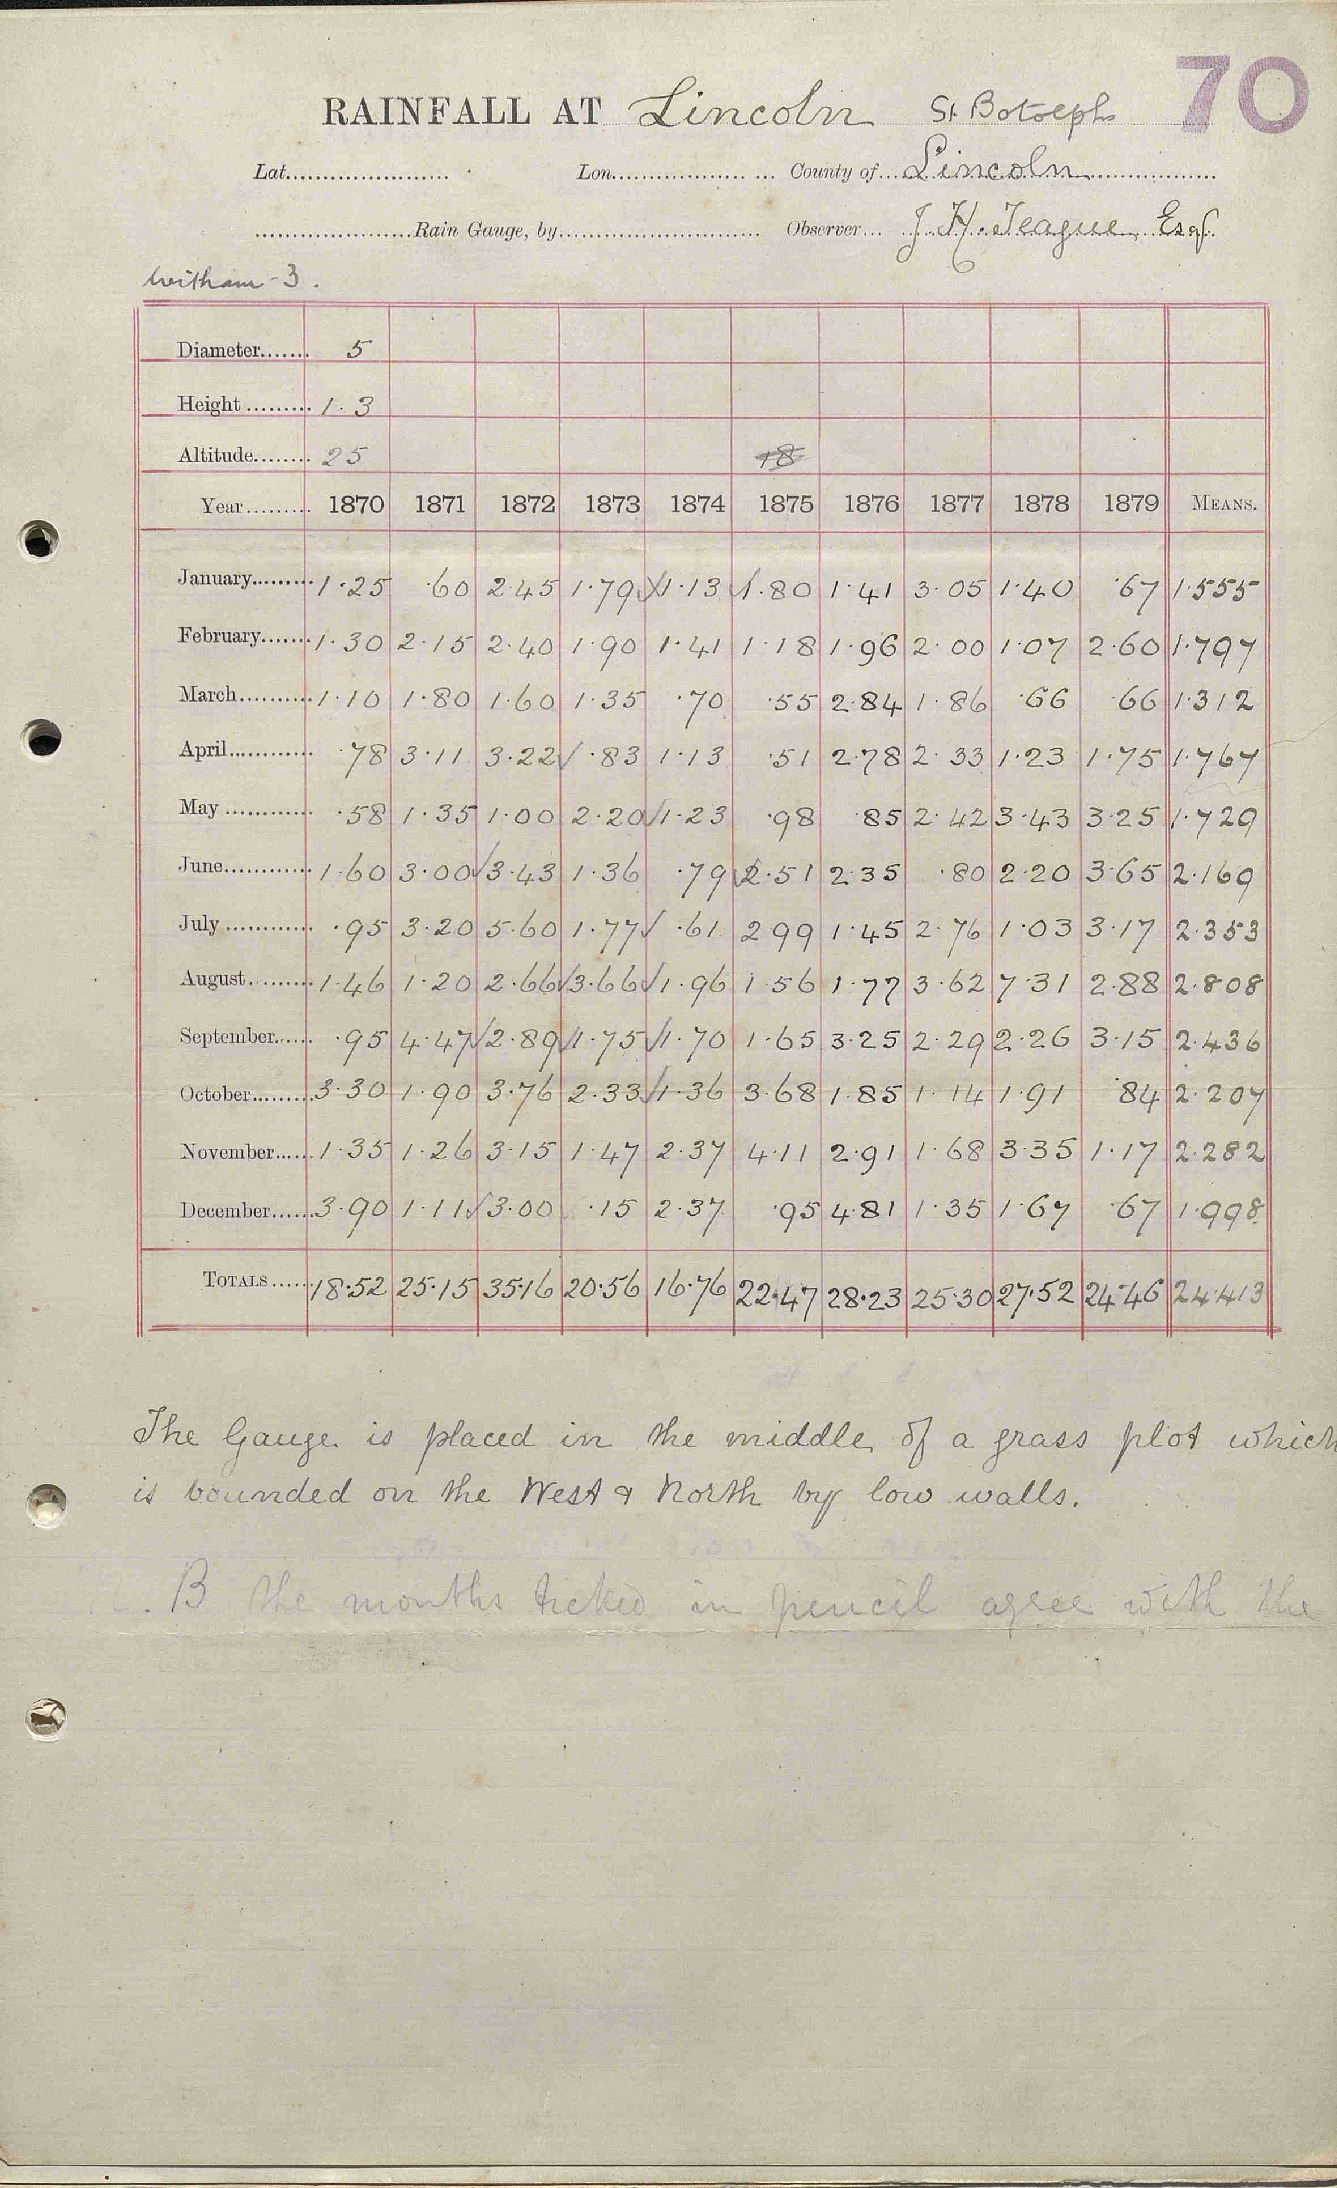 70
RAINFALL AT Lincoln St Botolph
Lat. Lon. County of Lincoln
Rain Gauge, by Observer J. H. Teague Esq
Witham - 3.
Diameter 5
Height 1.3
Altitude 25 18
Year 1870 1871 1872 1873 1874 1875 1876 1877 1878 1879 MEANS.
January 1.25 .60 2.45 1.79 1.13 1.80 1.41 3.05 1.40 .67 1.555
February 1.30 2.15 2.40 1.90 1.41 1.18 1.96 2.00 1.07 2.60 1.797
March 1.10 1.80 1.60 1.35 .70 .55 2.84 1.86 .66 .66 1.312
April .78 3.11 3.22 .83 1.13 .51 2.78 2.33 1.23 1.75 1.767
May .58 1.35 1.00 2.20 1.23 .98 .85 2.42 3.43 3.25 1.729
June 1.60 3.00 3.43 1.36 .79 2.51 2.35 .80 2.20 3.65 2.169
July .95 3.20 5.60 1.77 .61 2.99 1.45 2.76 1.03 3.17 2.353
August 1.46 1.20 2.66 3.66 1.96 1.56 1.77 3.62 7.31 2.88 2.808
September .95 4.47 2.89 1.75 1.70 1.65 3.25 2.29 2.26 3.15 2.436
October 3.30 1.90 3.76 2.33 1.36 3.68 1.85 1.14 1.91 .84 2.207
November 1.35 1.26 3.15 1.47 2.37 4.11 2.91 1.68 3.35 1.17 2.282
December 3.90 1.11 3.00 .15 2.37 .95 4.81 1.35 1.67 .67 1.998
TOTALS 18.52 25.15 35.16 20.56 16.76 22.47 28.23 25.30 27.52 24.46 24.413
The Gauge is placed in the middle of a grass plot which
is bounded on the West & North by low walls.
N.B the months ticked in pencil agree with the